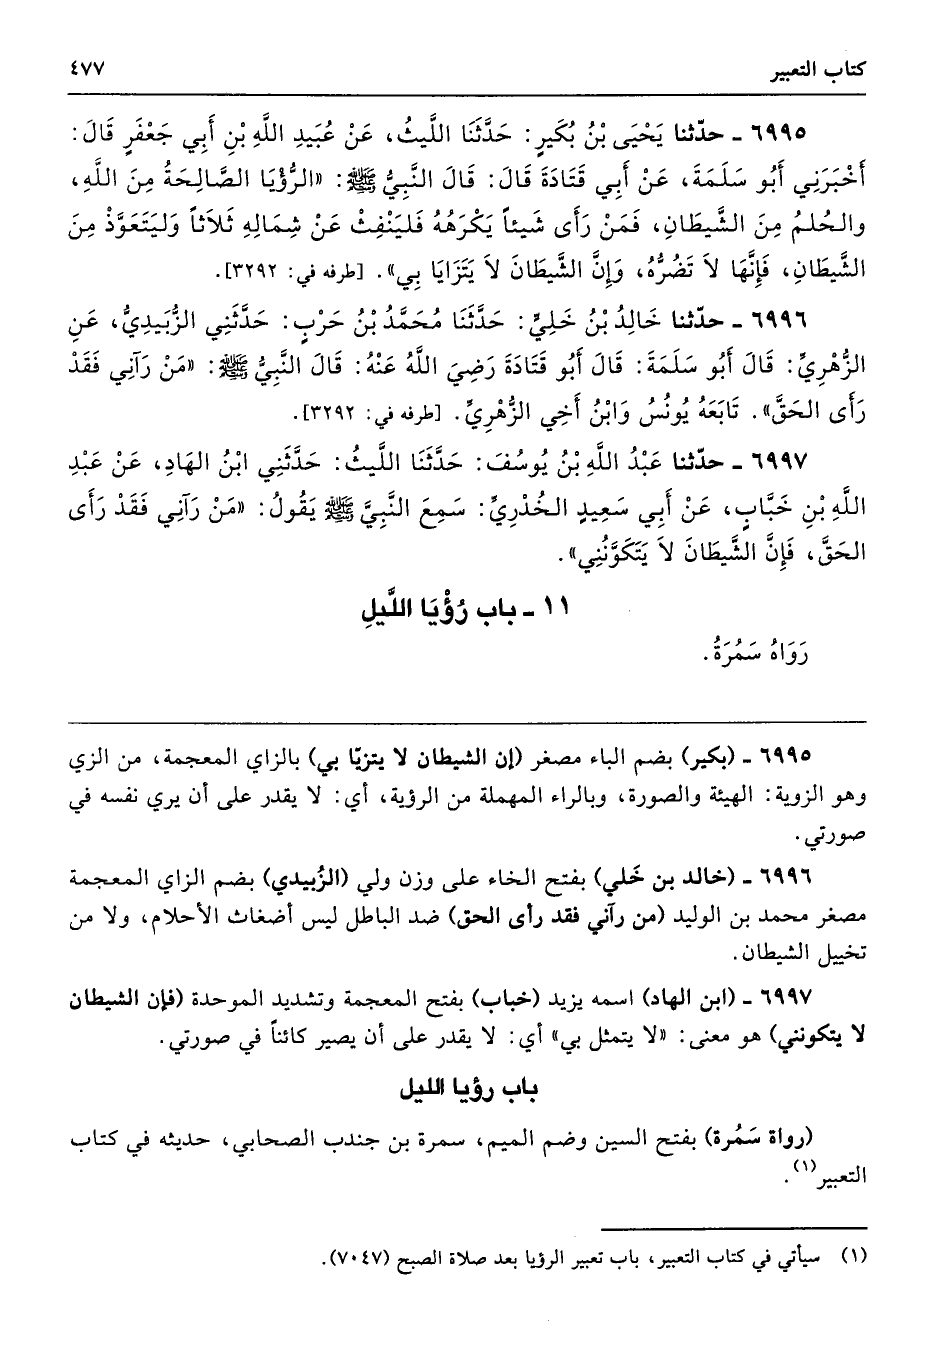 كتاب التعبير ٤٧٧
٦٩٩٥ ـ حدّثنا يَحْيَى بْنُ بُكَيرٍ: حَدَّثَنَا اللَّيثُ، عَنْ عُبَيدِ اللَّهِ بْنِ أَبِي جَعْفَرٍ قَالَ:
أَخْبَرَنِي أَبُو سَلَمَةَ، عَنْ أَبِي قَتَادَةَ قَالَ: قَالَ النَّبِيُّ ﷺ: «الرُّؤْيَا الصَّالِحَةُ مِنَ اللَّهِ،
والحُلمُ مِنَ الشَّيطَانِ، فَمَنْ رَأَى شَيئاً يَكْرَهُهُ فَليَنْفِثْ عَنْ شِمَالِهِ ثَلاَثاً وَليَتَعَوَّذْ مِنَ
الشَّيطَانِ، فَإِنَّهَا لاَ تَضُرُّهُ، وَإِنَّ الشَّيطَانَ لاَ يَتَزَايَا بِي». [طرفه في: ٣٢٩٢].
٦٩٩٦ ـ حدّثنا خَالِدُ بْنُ خَلِيٍّ: حَدَّثَنَا مُحَمَّدُ بْنُ حَرْبٍ: حَدَّثَنِي الزُّبَيدِيُّ، عَنِ
الزُّهْرِيِّ: قَالَ أَبُو سَلَمَةَ: قَالَ أَبُو قَتَادَةَ رَضِيَ اللَّهُ عَنْهُ: قَالَ النَّبِيُّ ﷺ: «مَنْ رَآنِي فَقَدْ
رَأَى الحَقَّ». تَابَعَهُ يُونُسُ وَابْنُ أَخِي الزُّهْرِيِّ. [طرفه في: ٣٢٩٢].
٦٩٩٧ ـ حدّثنا عَبْدُ اللَّهِ بْنُ يُوسُفَ: حَدَّثَنَا اللَّيثُ: حَدَّثَنِي ابْنُ الهَادِ، عَنْ عَبْدِ
اللَّهِ بْنِ خَبَّابٍ، عَنْ أَبِي سَعِيدٍ الخُدْرِيِّ: سَمِعَ النَّبِيَّ ﷺ يَقُولُ: «مَنْ رَآنِي فَقَدْ رَأَى
الحَقَّ، فَإِنَّ الشَّيطَانَ لاَ يَتَكَوَّنُنِي».
١١ ـ باب رُؤْيَا اللَّيلِ
رَوَاهُ سَمُرَةُ.
٦٩٩٥ ـ (بكير) بضم الباء مصغر (إن الشيطان لا يتزيّا بي) بالزاي المعجمة، من الزي
وهو الزوية: الهيئة والصورة، وبالراء المهملة من الرؤية، أي: لا يقدر على أن يري نفسه في
صورتي.
٦٩٩٦ ـ (خالد بن خَلي) بفتح الخاء على وزن ولي (الزُبيدي) بضم الزاي المعجمة
مصغر محمد بن الوليد (من رآني فقد رأى الحق) ضد الباطل ليس أضغاث الأحلام، ولا من
تخييل الشيطان.
٦٩٩٧ ـ (ابن الهاد) اسمه يزيد (خباب) بفتح المعجمة وتشديد الموحدة (فإن الشيطان
لا يتكونني) هو معنى: «لا يتمثل بي» أي: لا يقدر على أن يصير كائناً في صورتي.
باب رؤيا الليل
(رواة سَمُرة) بفتح السين وضم الميم، سمرة بن جندب الصحابي، حديثه في كتاب
التعبير(١).
(١) سيأتي في كتاب التعبير، باب تعبير الرؤيا بعد صلاة الصبح (٧٠٤٧).